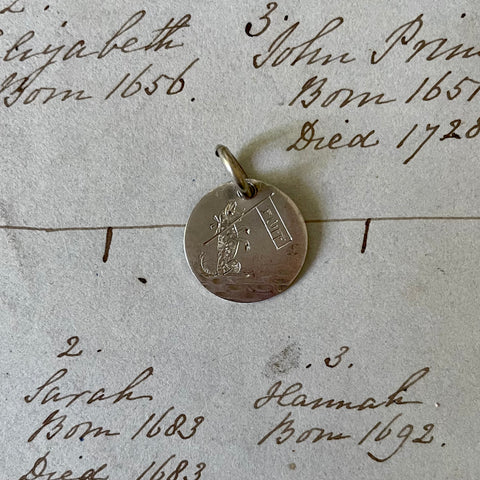 2.
Elizabeth
Born 1656.
3.
John Prin
Born 1651
Died 1728
2.
Sarah
Born 1683
Died 1683
.3.
Hannah
Born 1692.